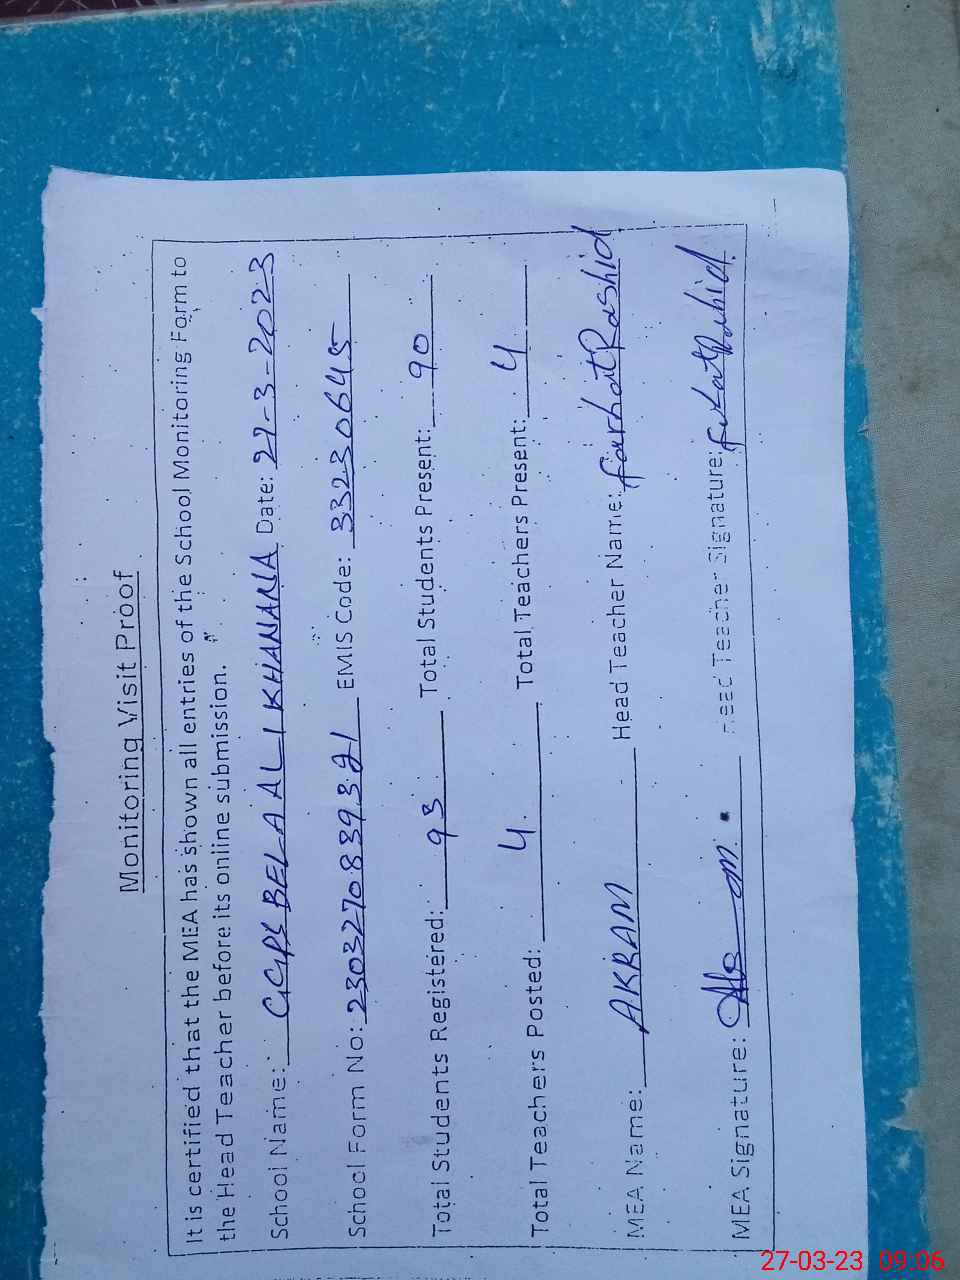 Monitoring Visit Proof
It is certified that the MEA has shown all entries of the School Monitoring Form to
the Head Teacher before its online submission.
School Name: GGPS BELA ALI KHANANA Date: 27-3-2023
School Form No: 230327083921 EMIS Code: 33230645
Total Students Registered: 93 Total Students Present: 90
Total Teachers Posted: 4 Total Teachers Present: 4
MEA Name: AKRAM Head Teacher Name: Farhat Rashid
MEA Signature: Head Teacher Signature: Farhat Rashid
27-03-23 09:06